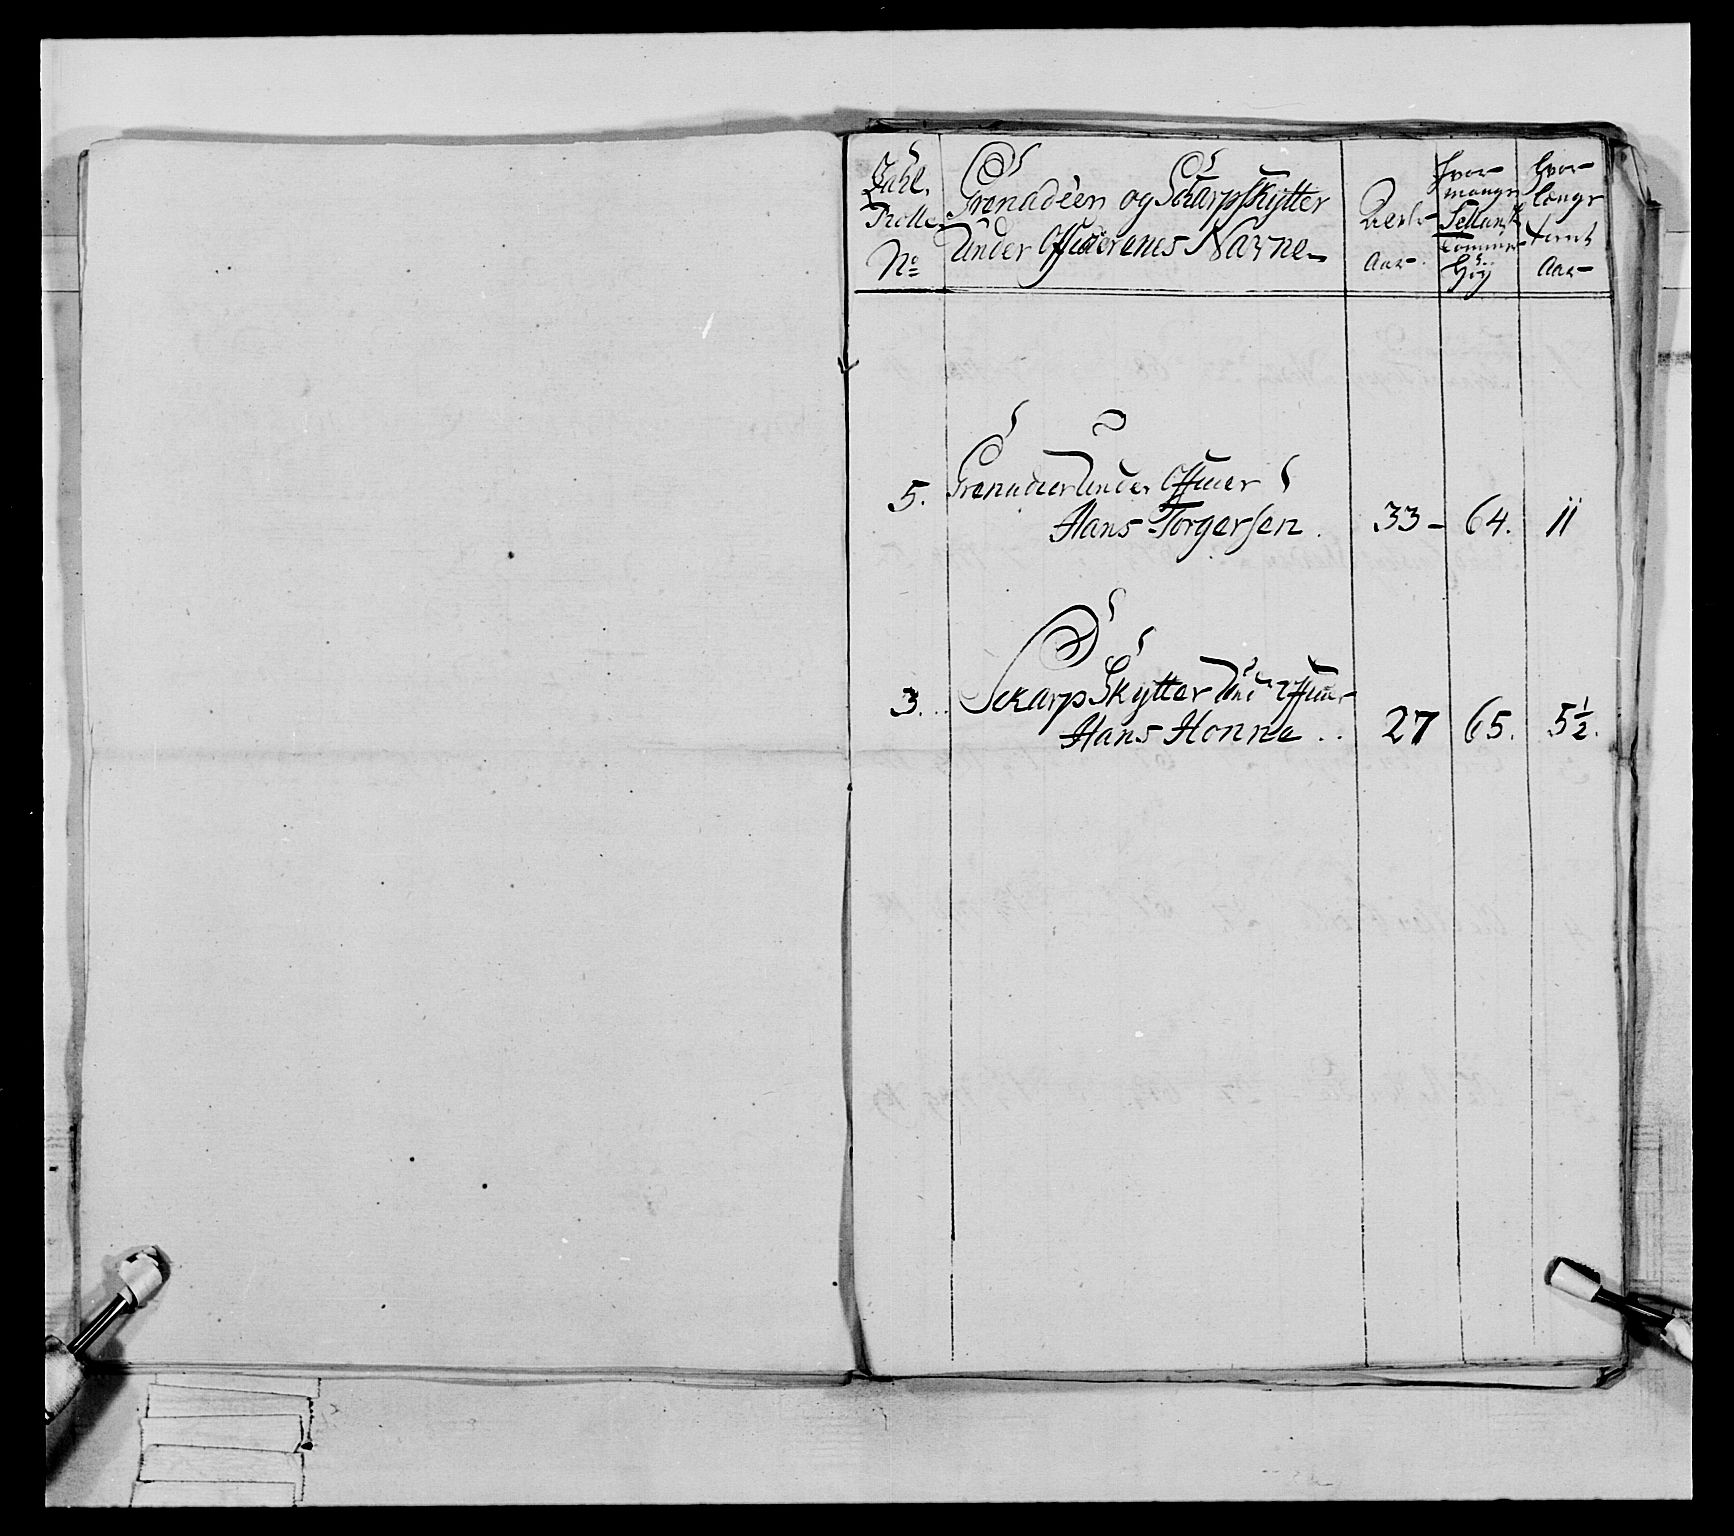 Rolle
No
Grenadeer og Skarpskytter
Under Officerenes Navne
Aar
hvor
mange
Sellandsk
Tommer
Høy
hvor
længe
tient
Aar
5. Grenadeer Under Officer
Hans Torgersen. 33 - 64. 11
3. Skarp Skytter Und Officer
Hans Honne .. 27 65. 5 1/2.